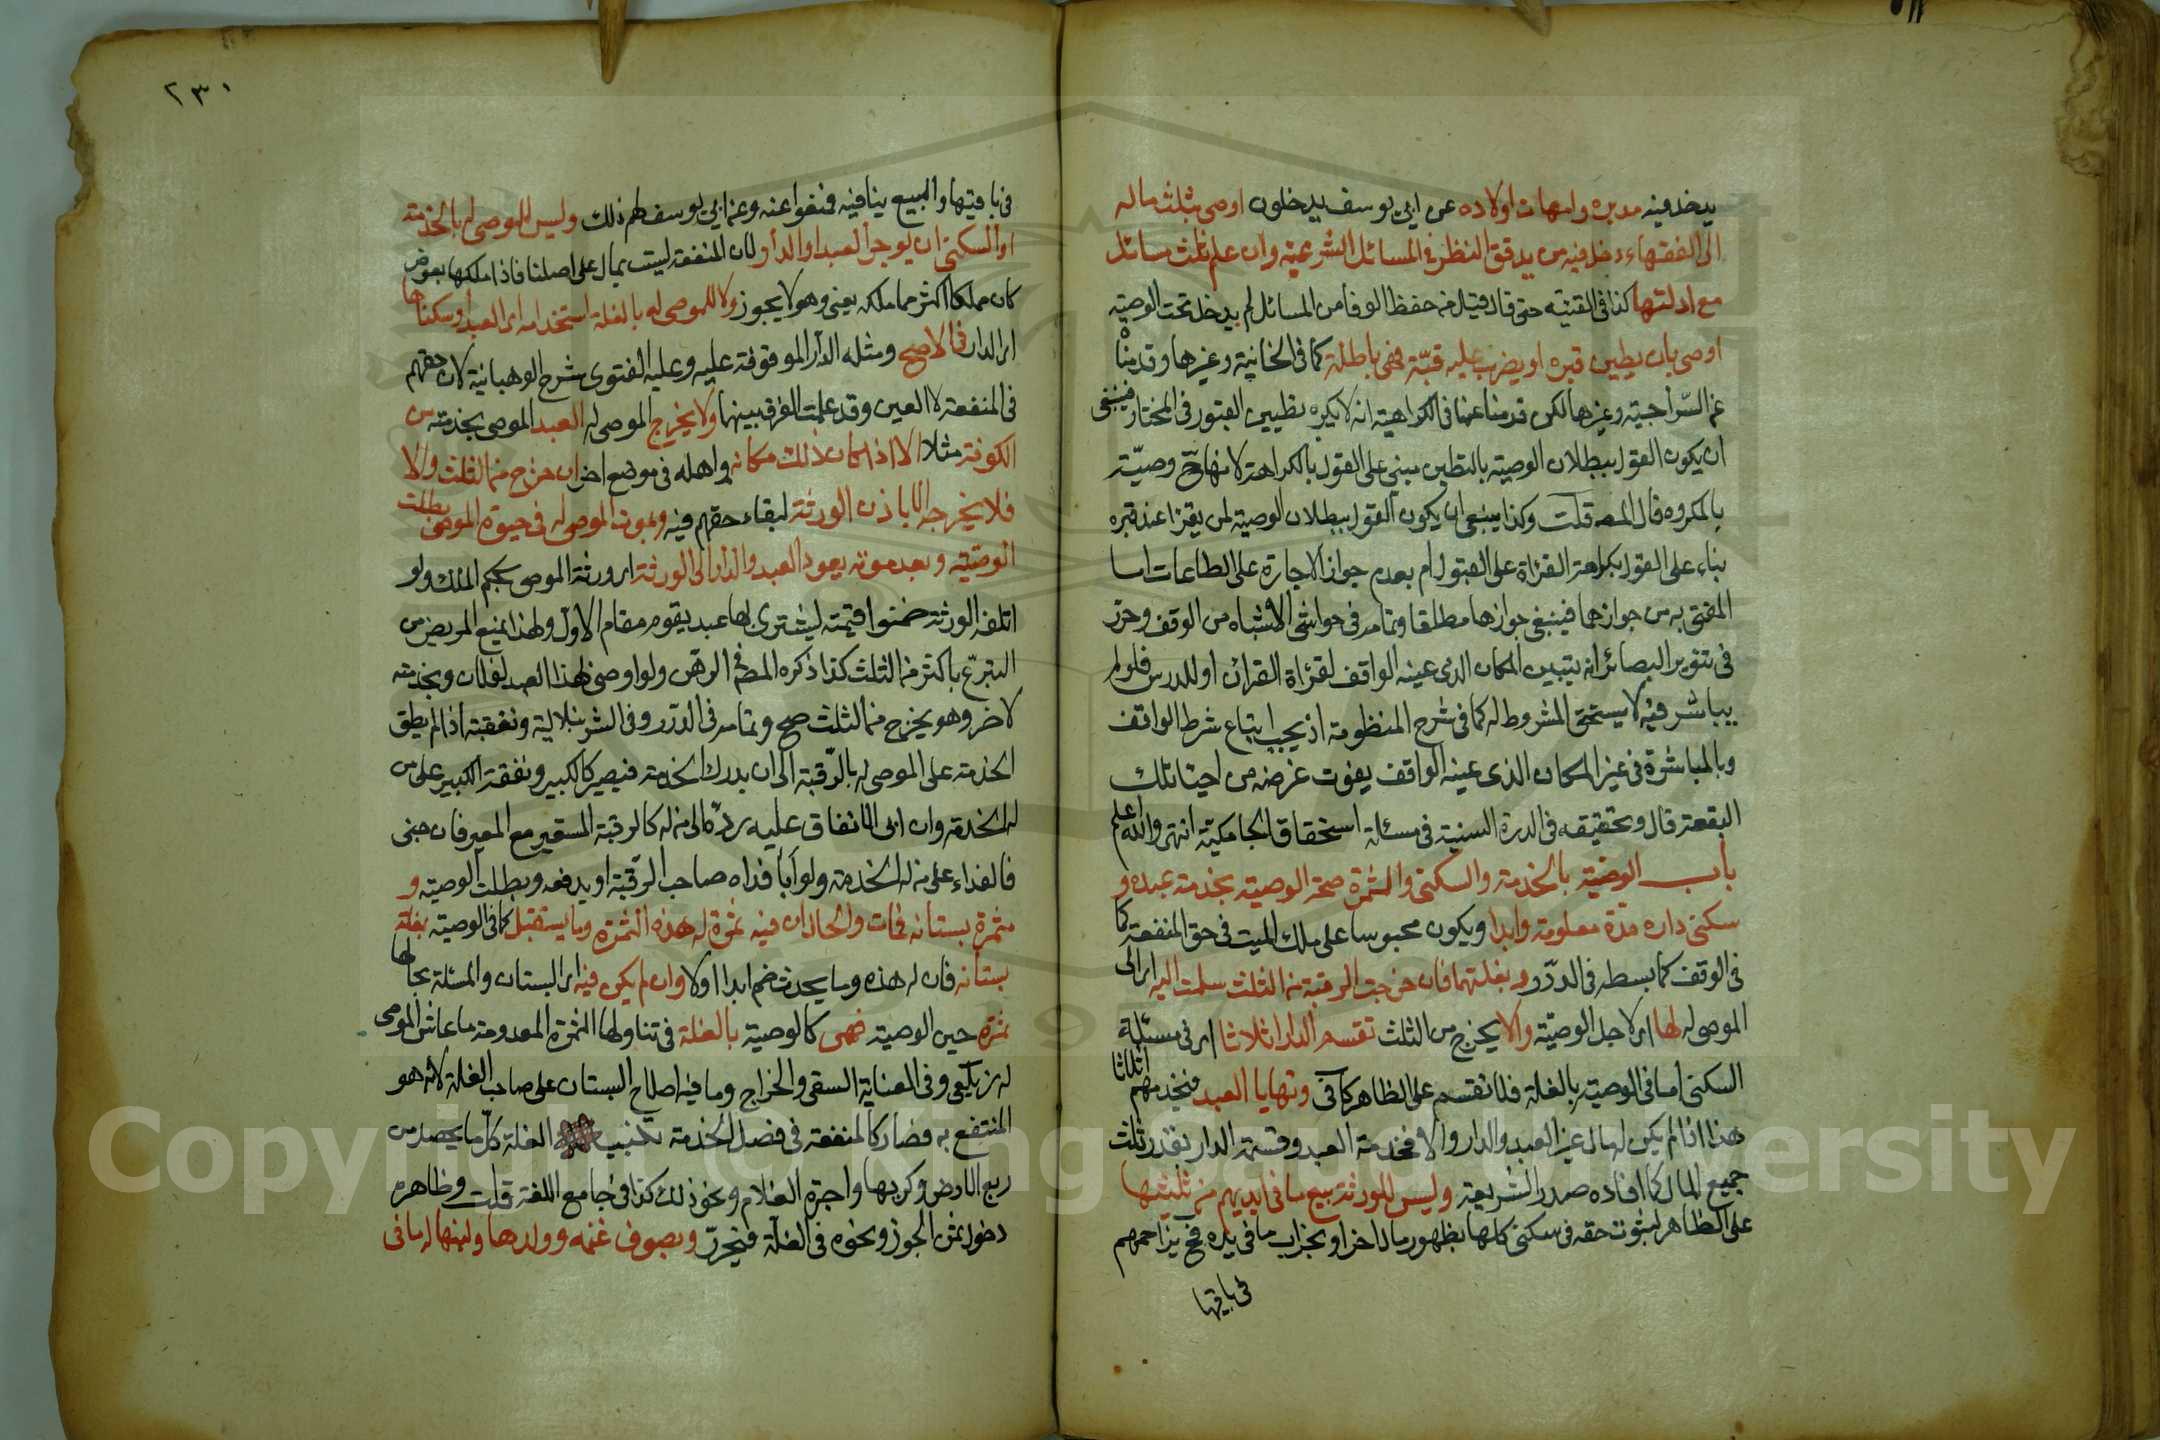 يدخل فيه مدبره وامهات اولاده عن ابي يوسف يدخلون اوصى بثلث ماله
الى الفقهاء دخل فيه من يدقق النظر في المسائل الشرعية وان علم ثلث مسائل
مع ادلتها كذا في القنية حتى قال قيل من حفظ الوفا من المسائل لم يدخل تحت الوصية
اوصى بان يطين قبره او يضرب عليه قبة فهي باطلة كما في الخانية وغيرها وقدمناه
عن السراجية وغيرها لكن قدمنا عنها في الكراهية انه لا يكره تطيين القبور في المختار فينبغي
ان يكون القول ببطلان الوصية بالتطيين مبني على القول بالكراهة لانها ح وصية
بالمكروه قال المصه قلت وكذا ينبغي ان يكون القول ببطلان الوصية لمن يقرا عند قبره
بناء على القول بكراهة القراة على القبول ام بعدم جواز الاجارة على الطاعات اما
المفتى به من جوازهما فينبغي جوازها مطلقا وتمامه في حواشي الاشباه من الوقف وحرر
في تنوير البصائر انه يتبين المكان الذي عينه الواقف لقراة القران او للدرس فلو لم
يباشر فيه لا يستحق المشروط له كما في شرح المنظومة اذ يجب اتباع شرط الواقف
وبالمباشرة في غير المكان الذي عينه الواقف يفوت غرضه من احياء تلك
البقعة قال وتحقيقه في الدرة السنية في مسئلة استحقاق الجامكية انتهى والله اعلم
باب الوصية بالخدمة والسكنى والثمرة صحة الوصية بخدمة عبده و
سكنى داره مدة معلومة وابدا ويكون محبوسا على ملك الميت في حق المنفعة كما
في الوقف كما بسطه في الدرر وبغلتهما فان خرجت الرقبة من الثلث سلمت اليه اي الى
الموصى له لها اي لاجل الوصية والا يخرج من الثلث تقسم الدار اثلاثا اي في مسئلة
السكنى اما في الوصية بالغلة فلا تقسم على الظاهر كما في وتهايا العبد فيخدمهم اثلاثا
هذا اذا لم يكن له مال غير العبد والدار والا فخدمة العبد وقسمة الدار بقدر ثلث
جميع المال كما افاده صدر الشريعة وليس للورثة بيع ما في ايديهم من ثلثيها
على الظاهر لثبوت حقه في سكنى كلها بظهور مال اخر او بخراب ما في يده فح يزاحمهم
في باقيها
٢٣٠
في باقيها والبيع ينافيه فنفوا عنه وعن ابي يوسف لهم ذلك وليس للموصى له بالخدمة
او السكنى ان يوجر العبد او الدار ولان المنفعة ليست بمال على اصلنا فاذا ملكها بعوض
كان مملكا اكثر مما ملكه يعني وهو لا يجوز ولا للموصى له بالغلة استخدامه اي العبد او سكناها
اي الدار في الاصح ومثله الدار الموقوفة عليه وعليه الفتوى شرح الوهبانية لان حقهم
في المنفعة لا العين وقد علمت الفرق بينهما ولا يخرج الموصى له العبد الموصى بخدمته من
الكوفة مثلا الا اذا كان ذلك مكانه واهله في موضع اخر ان خرج من الثلث والا
فلا يخرجه الا باذن الورثة لبقاء حقهم فيه وبموت الموصى له في حيوة الموصي بطلت
الوصية وبعد موته يعود العبد والدار الى الورثة اي ورثة الموصي بحكم الملك ولو
اتلفه الورثة ضمنوا قيمته ليشترى بها عبد يقوم مقام الاول ولهذا يمنع المريض من
التبرع باكثر من الثلث كذا ذكره المصه في الرهن ولو اوصى بهذا العبد لفلان وبخدمته
لاخر وهو يخرج من الثلث صح وتمامه في الدرر وفي الشرنبلالية ونفقته اذا لم يطق
الخدمة على الموصى له بالرقبة الى ان يدرك الخدمة فيصير كالكبير ونفقة الكبير على من
له الخدمة وان ابى الانفاق عليه رده الى من له كالرقبة المستعير مع المعير فان جنى
فالفداء على من له الخدمة ولو ابا فداه صاحب الرقبة او يدفعه وبطلت الوصية و
بثمرة بستانه فمات والحال ان فيه ثمرة له هذه الثمرة وما يستقبل كما في الوصية بغلة
بستانه فان له هذه وما يحدث ضم ابدا اولا وان لم يكن فيه اي البستان والمسئلة بحالها
ثمرة حين الوصية فهي كالوصية بالغلة في تناولها الثمرة المعدومة ما عاش الموصى
له زيلعي وفي العناية السقي والخراج وما فيه اصلاح البستان على صاحب الغلة لانه هو
المنتفع به فصار كالمنفعة في فصل الخدمة تنبيه الغلة كل ما يحصل من
ريع الارض وكريها واجرة الغلام ونحو ذلك كذا في جامع اللغة قلت وظاهره
دخول ثمن الجوز ونحوه في الغلة فيحرر وبصوف غنمه وولدها ولبنها له ما في
Copyright © King Saud University